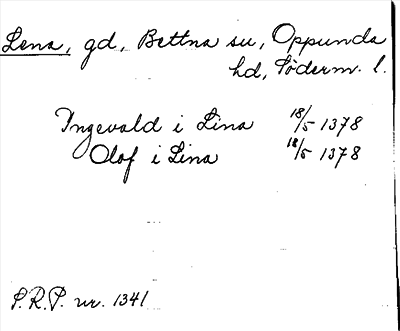 Lena, gd, Bettna su, Oppunda
hd, Söderm. l.
Ingevald i Lina 18/5 1378
Olof i Lina 18/5 1378
S.R.P. nr. 1341